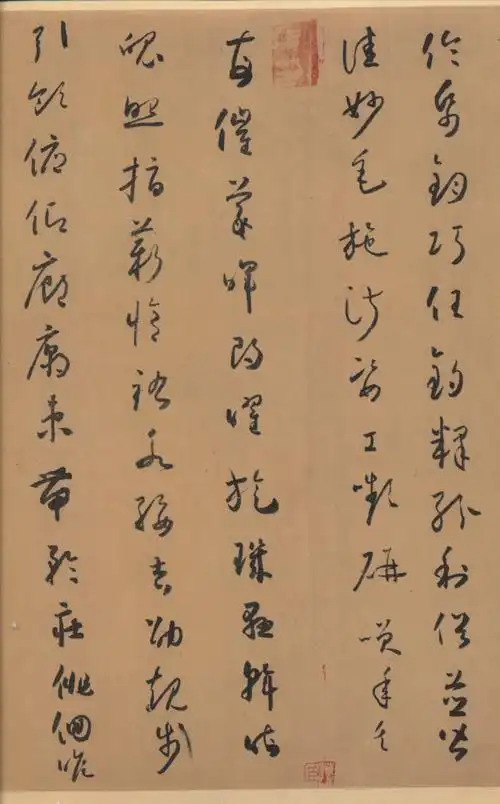 倫帋鈞巧任釣釋紛利俗並皆
佳妙毛施淑姿工嚬妍咲年矢
每催羲暉朗曜旋璣懸斡晦
魄照指薪脩祜永綏吉劭規步
引領俯仰廊廟束帶矜莊俳佪瞻